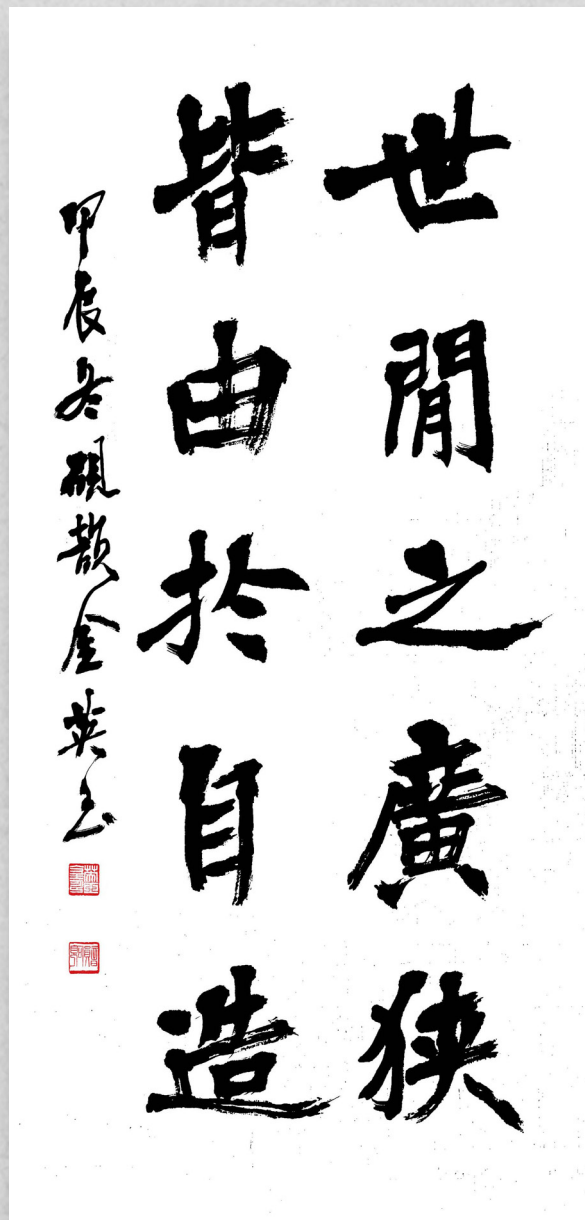 世間之廣狹
皆由於自造
甲辰冬硯韻金英玉